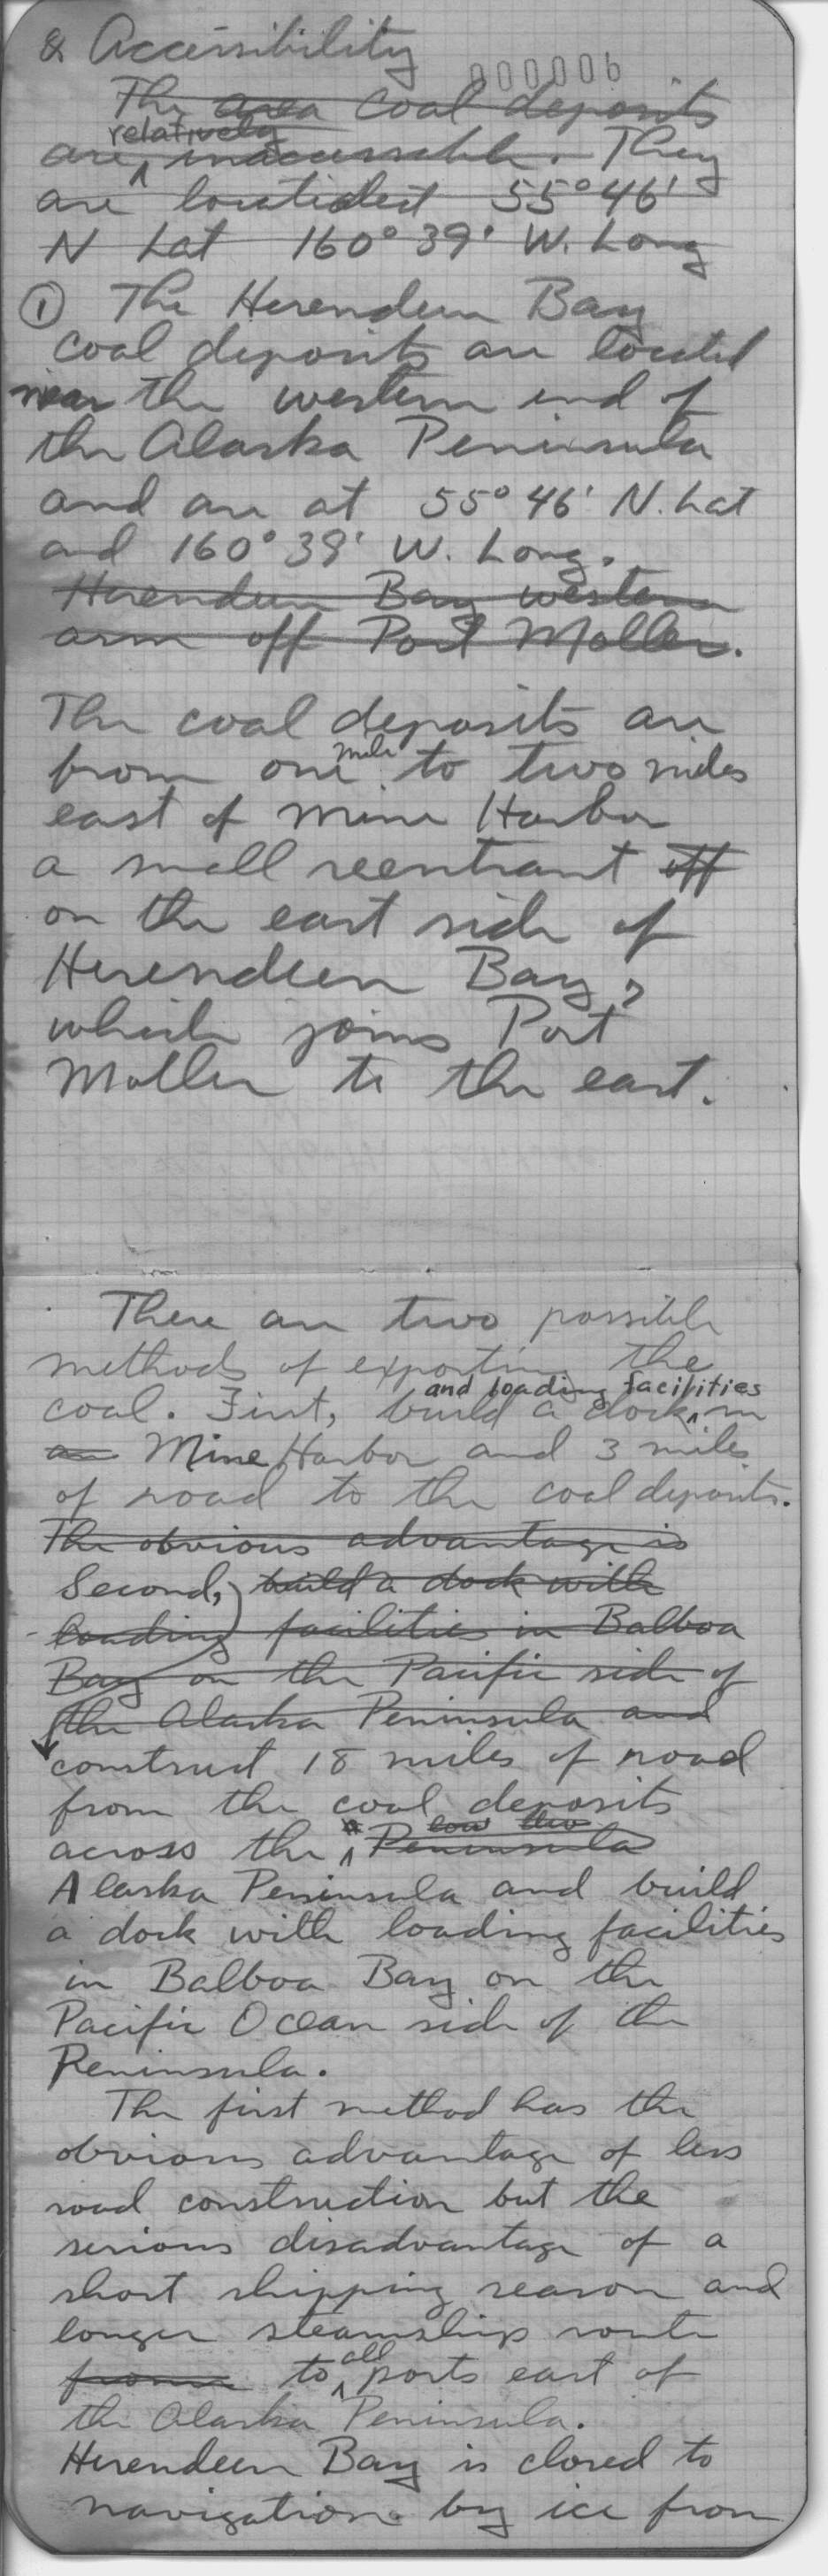 & Accessibility
000006
The area coal deposits
relatively
are inaccessible. They
are located 55°46'
N Lat 160°39' W. Long
① The Herendeen Bay
coal deposits are located
near the western end of
the Alaska Peninsula
and are at 55°46' N. Lat
and 160°39' W. Long.
Herendeen Bay western
arm off Port Moller.
The coal deposits are
mile
from one to two miles
east of Mine Harbor
a small reentrant off
on the east side of
Herendeen Bay,
which joins Port
Moller to the east.
There are two possible
methods of exporting the
and loading facilities
coal. First, build a dock in
an Mine Harbor and 3 miles
of road to the coal deposits.
The obvious advantage is
Second, build a dock with
loading facilities in Balboa
Bay on the Pacific side of
the Alaska Peninsula and
construct 18 miles of road
from the coal deposits
low
across the Peninsula
Alaska Peninsula and build
a dock with loading facilities
in Balboa Bay on the
Pacific Ocean side of the
Peninsula.
The first method has the
obvious advantage of less
road construction but the
serious disadvantage of a
short shipping season and
longer steamship route
all
from to ports east of
the Alaska Peninsula.
Herendeen Bay is closed to
navigation by ice from